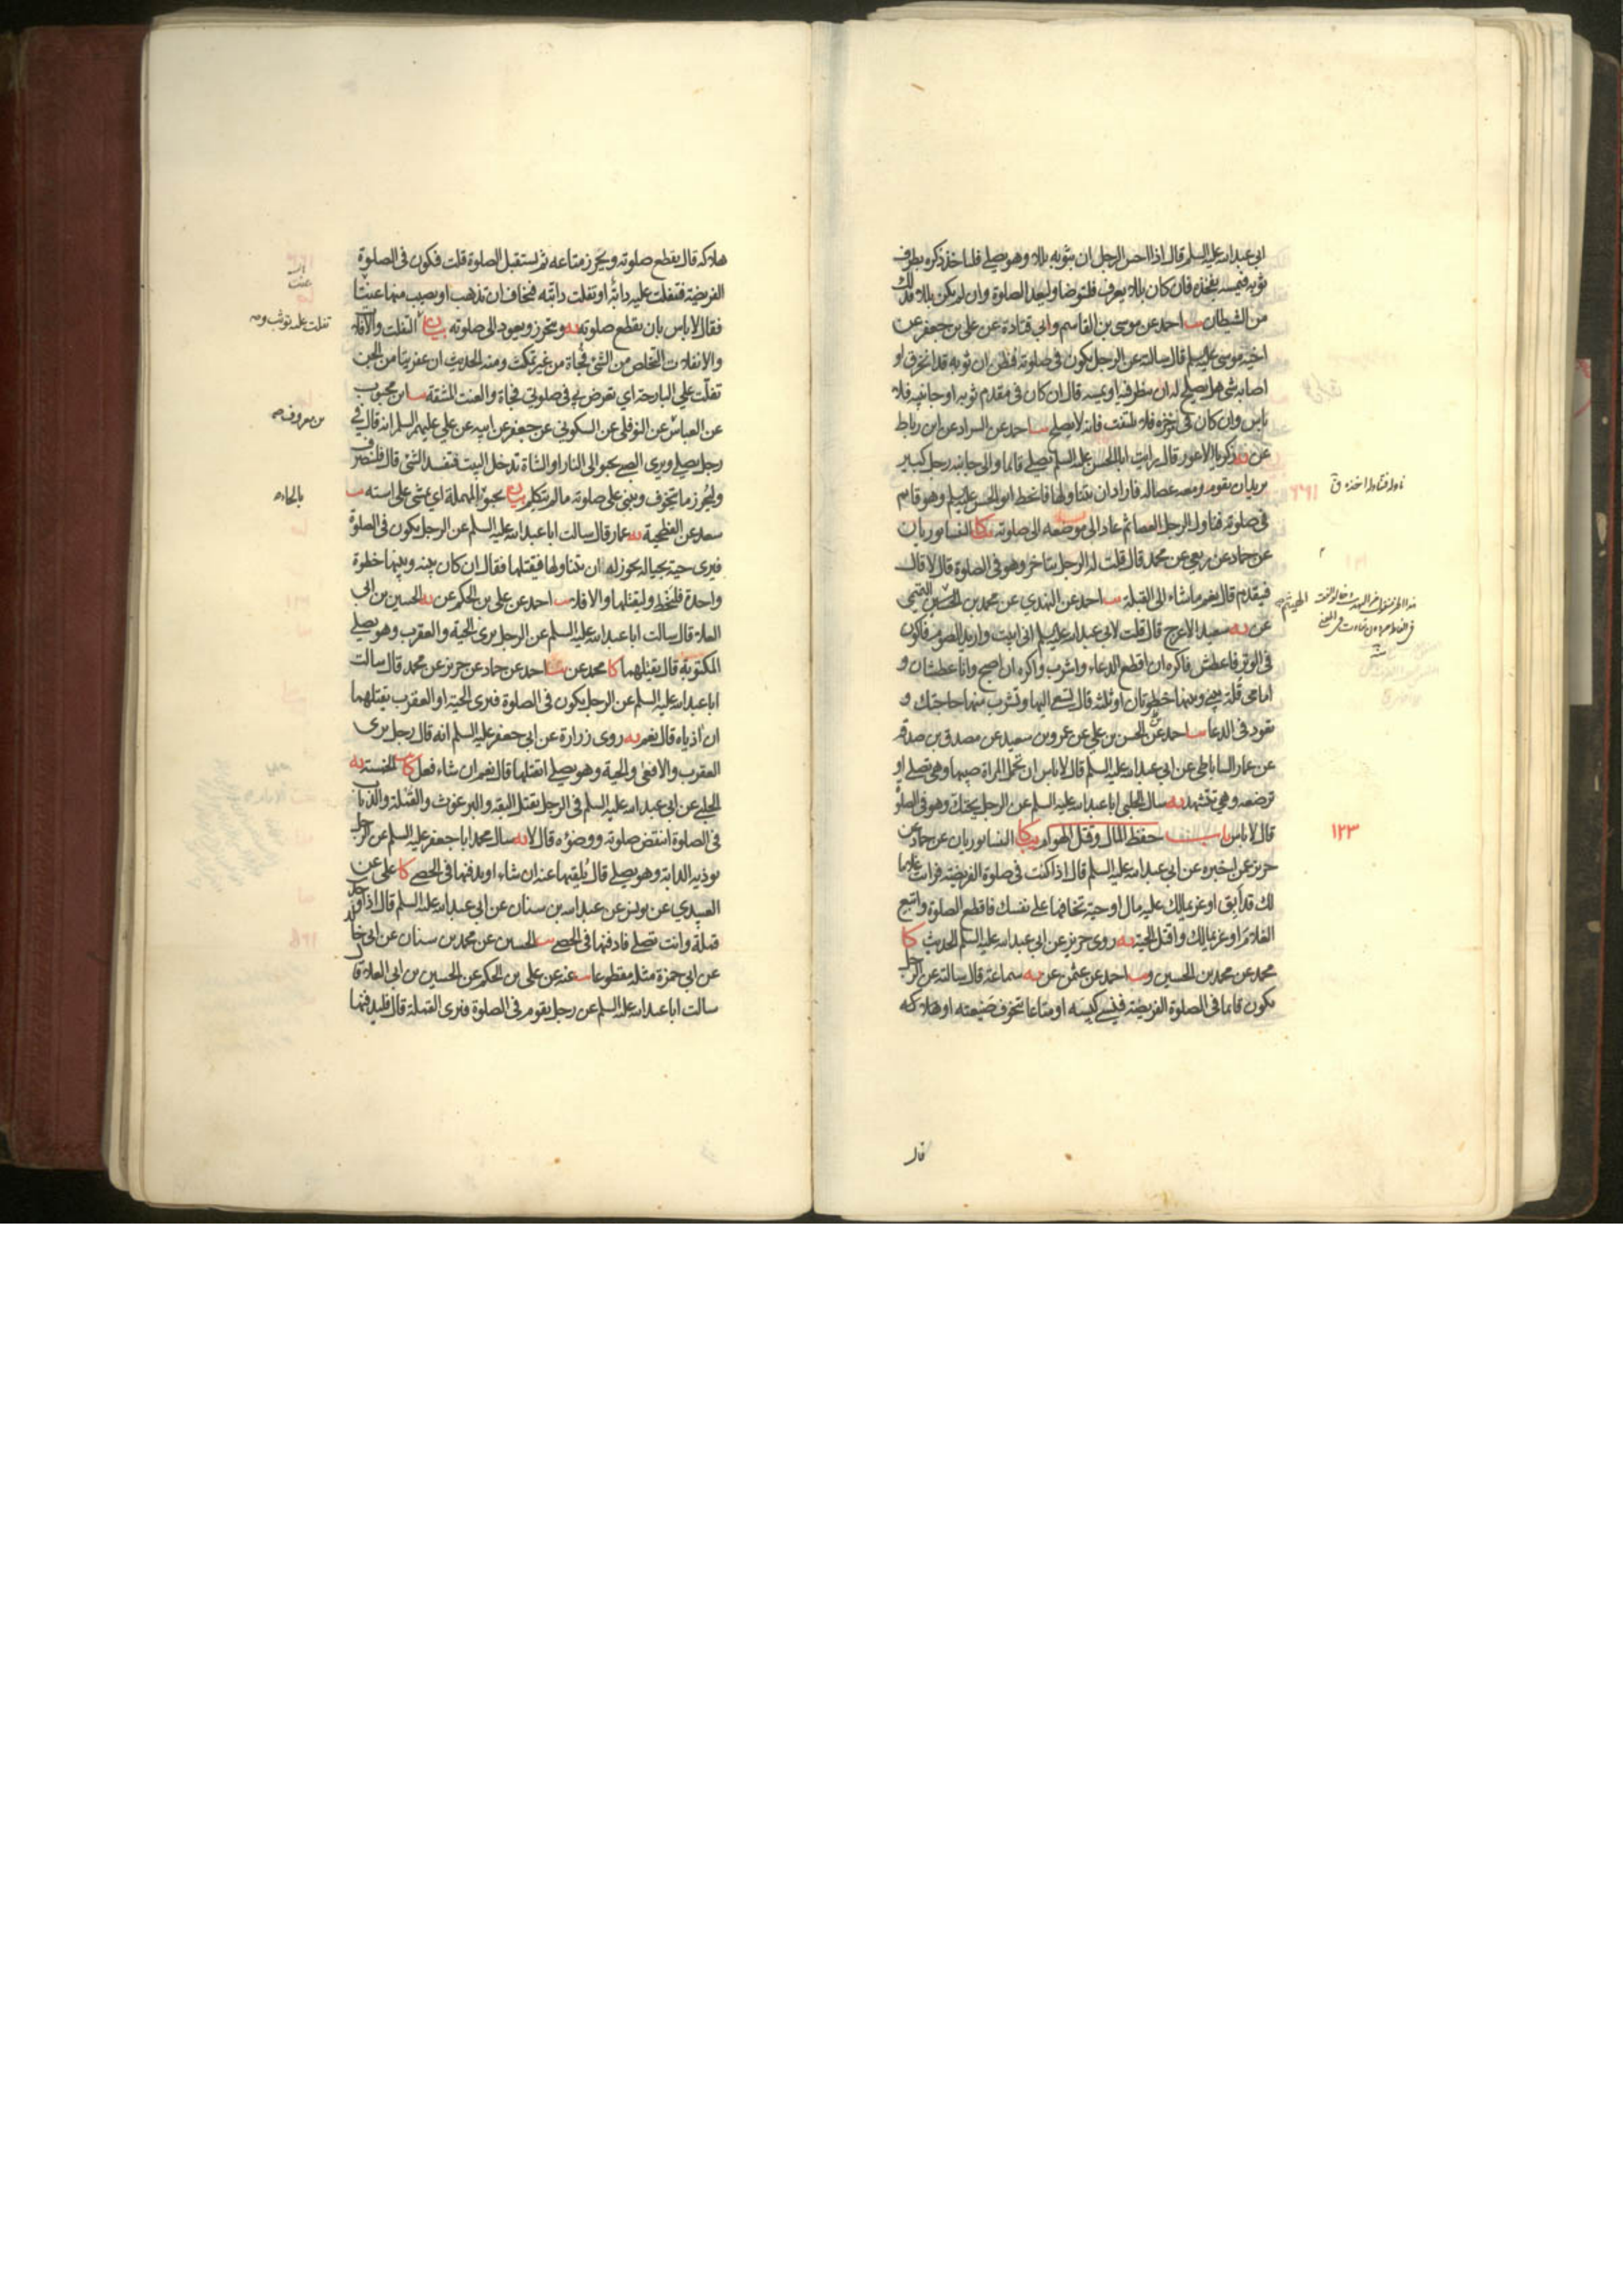 ابى عبد الله عليه السلم قال اذا احس الرجل ان بثوبه بللا وهو يصلى فلياخذ ذكره بطرف
ثوبه فيمسه بفخذه فان كان بللا يعرف فليتوضا وليعد الصلوة وان لم يكن بللا فذلك
من الشيطان يب احمد عن موسى بن القاسم وابى قتادة عن على بن جعفر عن
اخيه موسى عليه السلم قال سالته عن الرجل يكون فى صلوته فظن ان ثوبه قد انخرق او
اصابه شى هل يصلح له ان ينظر فيه او يمسه قال ان كان فى مقدم ثوبه او جانبيه فلا
باس وان كان فى مؤخره فلا يلتفت فانه لا يصلح يب احمد عن السراد عن ابن رباط
عن يه زكريا الاعور قال رايت ابا الحسن عليه السلم يصلى قائما والى جانبه رجل كبير
يريد ان يقوم ومعه عصا له فاراد ان يتناولها فانحط ابو الحسن عليه السلم وهو قائم
فى صلوته فناول الرجل العصا ثم عاد الى موضعه الى صلوته يكا النيسابوريان
عن حماد عن ربعى عن محمد قال قلت له الرجل يتاخر وهو فى الصلوة قال لا قلت
فيقدم قال نعم ما شاء الى القبلة يب احمد عن النهدي عن محمد بن الهيثم
عن يه سعيد الاعرج قال قلت لابى عبد الله عليه السلم انى ابيت واريد الصوم فاكون
فى الوتر فاعطش فاكره ان اقطع الدعاء واشرب واكره ان اصبح وانا عطشان و
امامى قلة بينى وبينها خطوتان او ثلثة قال تسعى اليها وتشرب منها حاجتك و
تعود فى الدعا يب احمد عن الحسن بن على عن عمرو بن سعيد عن مصدق بن صدقة
عن عمار الساباطى عن ابى عبد الله عليه السلم قال لا باس ان تحمل المراة صبيها وهى تصلى او
ترضعه وهى تتشهد يه سال الحلبى ابا عبد الله عليه السلم عن الرجل يحتك وهو فى الصلوة
قال لا باس باب حفظ المال وقتل الهوام يكا النيسابوريان عن حماد عن
حريز عمن اخبره عن ابى عبد الله عليه السلم قال اذا كنت فى صلوة الفريضة فرايت غلاما
لك قد ابق او غريما لك عليه مال او حية تخافها على نفسك فاقطع الصلوة واتبع
الغلام او غريما لك واقتل الحية يه روى حريز عن ابى عبد الله عليه السلم الحديث كا
محمد عن محمد بن الحسين ويب احمد عن عثمن عن يه سماعة قال سالته عن الرجل
يكون قائما فى الصلوة الفريضة فينسى كيسه او متاعا يتخوف ضيعته او هلاكه
ناوله فتناوله اخذه ق
١٢٣
قال
هلاكه قال يقطع صلوته ويحرز متاعه ثم يستقبل الصلوة قلت فيكون فى الصلوة
الفريضة فتفلت عليه دابة او تفلت دابته فيخاف ان تذهب او يصيب منها عنتا
فقال لا باس بان يقطع صلوته يه ويتحرز ويعود الى صلوته بيان التفلت والافلات
والانفلات التخلص من الشئ فجاة من غير تمكث ومنه الحديث ان عفريتا من الجن
تفلت على البارحة اي تعرض لى فى صلوتى فجاة والعنت المشقة يب ابن محبوب
عن العباس عن النوفلى عن السكونى عن جعفر عن ابيه عن على عليهم السلم انه قال فى
رجل يصلى ويرى الصبى يحبو الى النار او الشاة تدخل البيت فتفسد الشئ قال فلينصرف
وليحرز ما يتخوف ويبنى على صلوته ما لم يتكلم بيان يحبو بالمهملة اى يمشى على استه يب
سعد عن الفطحية يه عمار قال سالت ابا عبد الله عليه السلم عن الرجل يكون فى الصلوة
فيرى حية بحياله يجوز له ان يتناولها فيقتلها فقال ان كان بينه وبينها خطوة
واحدة فليخط وليقتلها والا فلا يب احمد عن على بن الحكم عن يه الحسين بن ابى
العلا قال سالت ابا عبد الله عليه السلم عن الرجل يرى الحية والعقرب وهو يصلى
المكتوبة قال يقتلهما كا محمد عن يب احمد عن حماد عن حريز عن محمد قال سالت
ابا عبد الله عليه السلم عن الرجل يكون فى الصلوة فيرى الحية او العقرب يقتلهما
ان اذياه قال نعم يه روى زرارة عن ابى جعفر عليه السلم انه قال رجل يرى
العقرب والافعى والحية وهو يصلى ايقتلها قال نعم ان شاء فعل كا الخمسة يه
الحلبى عن ابى عبد الله عليه السلم فى الرجل يقتل البقة والبرغوث والقملة والذباب
فى الصلوة اينقض صلوته ووضوءه قال لا يه سال محمد ابا جعفر عليه السلم عن الرجل
توذيه الدابة وهو يصلى قال يلقيها عنه ان شاء او يدفنها فى الحصى كا على عن
العبيدي عن يونس عن عبد الله بن سنان عن ابى عبد الله عليه السلم قال اذا وجدت
قملة وانت تصلى فادفنها فى الحصى يب الحسين عن محمد بن سنان عن ابى خالد
عن ابى حمزة مثله مقطوعا يب عنه عن على بن الحكم عن الحسين بن ابى العلا قال
سالت ابا عبد الله عليه السلم عن رجل يقوم فى الصلوة فيرى القملة قال فليدفنها
عنت
تفلت عليه توثب ومه
بن معروف صه
بالحاءه